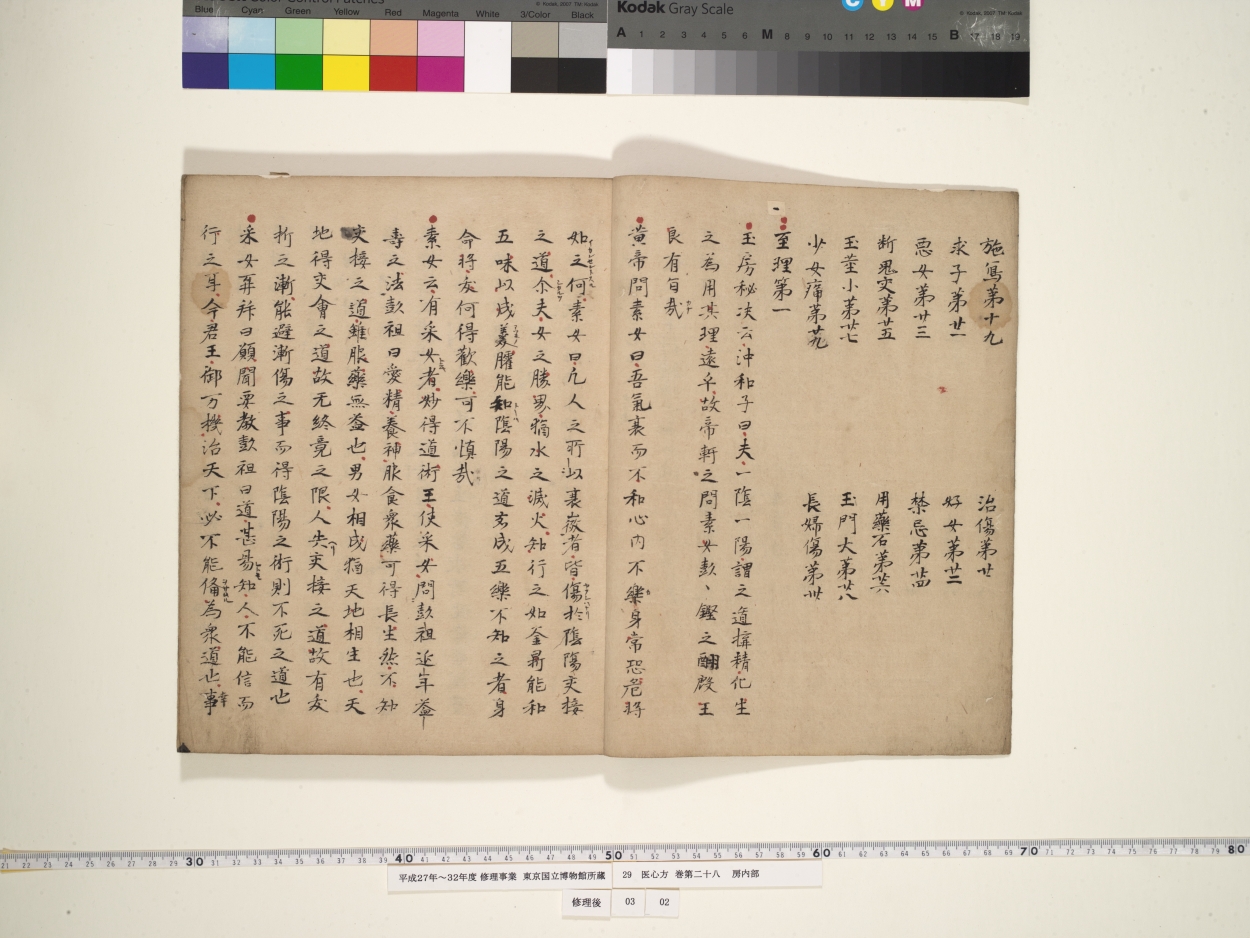 Blue Cyan Green Yellow Red Magenta White 3/Color Black
© Kodak, 2007 TM: Kodak
Kodak Gray Scale
C Y M
© Kodak, 2007 TM: Kodak
A 1 2 3 4 5 6 M 8 9 10 11 12 13 14 15 B 17 18 19
施寫第十九 治傷第廿
求子第廿一 好女第廿二
悪女第廿三 禁忌第廿四
断鬼交第廿五 用藥石第廿六
玉莖小第廿七 玉門大第廿八
少女痛第廿九 長婦傷第卅
至理第一
玉房秘决云沖和子曰夫一陰一陽謂之道搆精化生
之為用其理遠乎故帝軒之問素女彭、鏗之酬殷王
良有旨哉
黄帝問素女曰吾氣衰而不和心内不樂身常恐危将
如之何素女曰凡人之所以衰微者皆傷於陰陽交接
之道尓夫女之勝男猶水之滅火知行之如釜鼎能和
五味以成羹臛能知陰陽之道玄成五樂不知之者身
命将夭何得歡樂可不慎哉
素女云有采女者妙得道術王使采女問彭祖延年益
壽之法彭祖曰愛精養神服食衆藥可得長生然不知
交接之道雖服藥無益也男女相成猶天地相生也天
地得交會之道故无終竟之限人失交接之道故有夭
折之漸能避漸傷之事而得陰陽之術則不死之道也
采女再拝曰願聞要教彭祖曰道甚易知人不能信而
行之耳今君王御万機治天下必不能備為衆道也事
平成27年～32年度 修理事業 東京国立博物館所蔵 29 医心方 巻第二十八 房内部
修理後 03 02